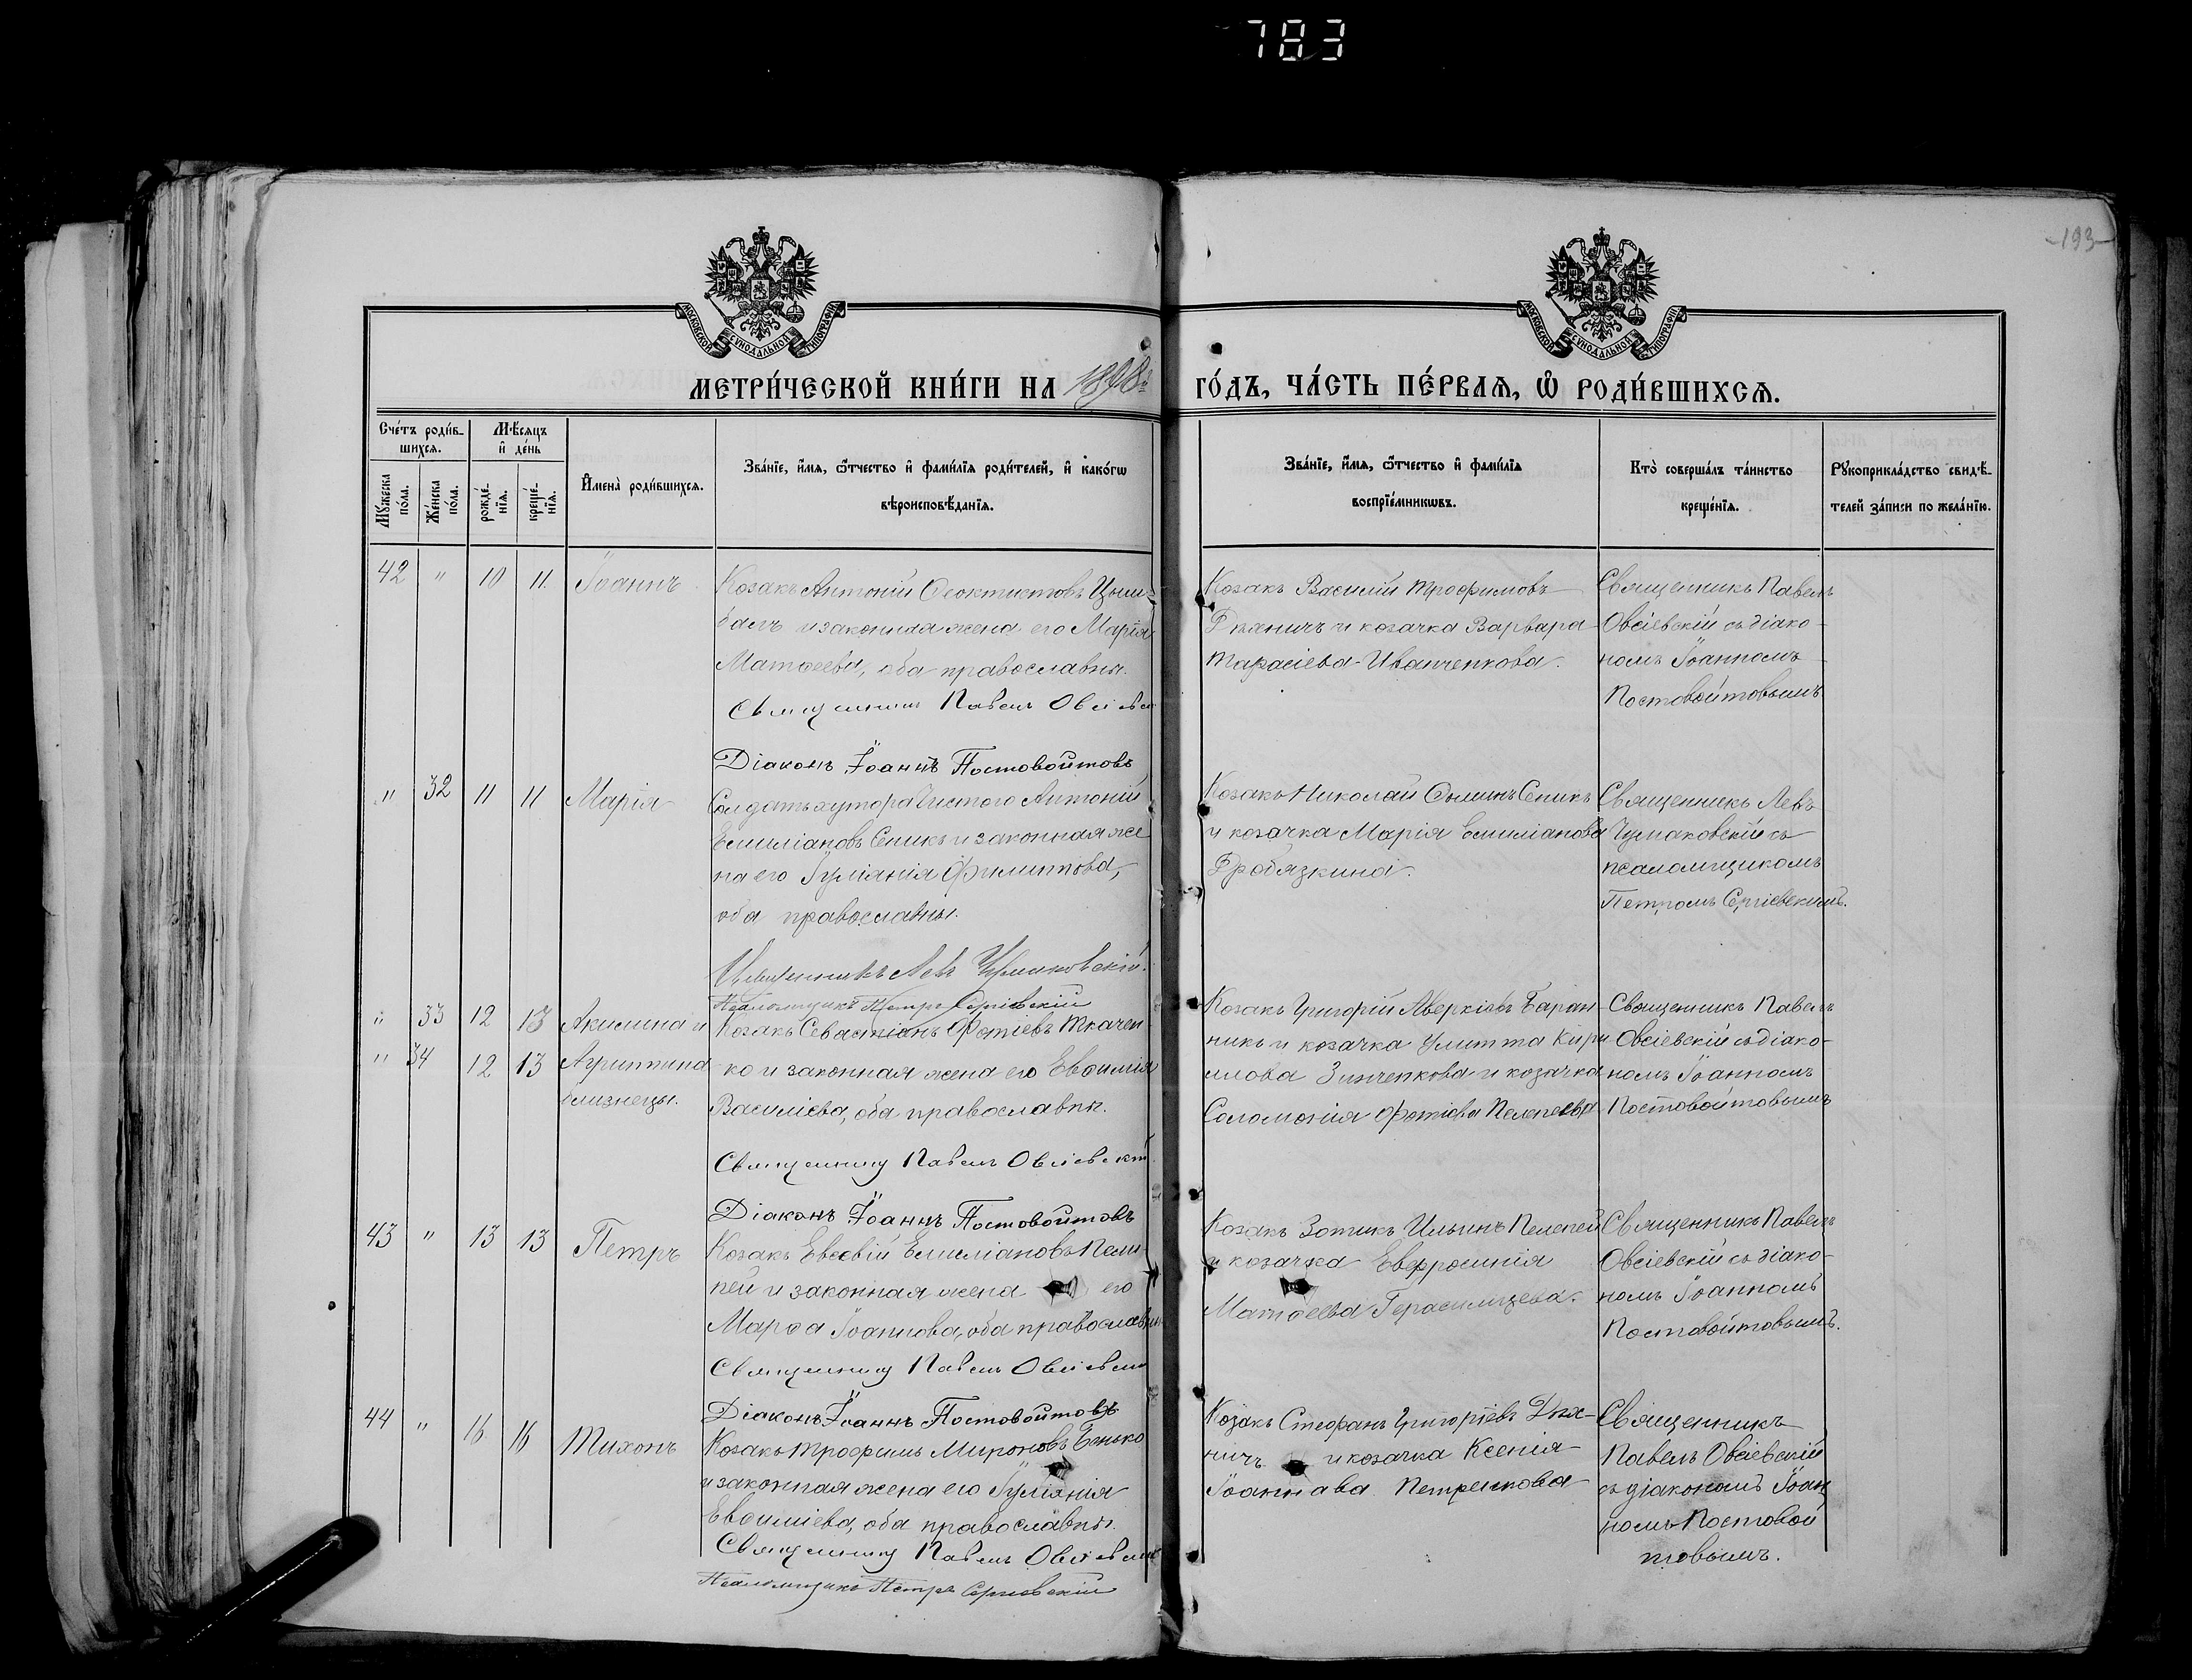 783
-193-
МОСКОВСКОЙ СѴНОДАЛЬНОЙ ТИПОГРАФІИ
МОСКОВСКОЙ СѴНОДАЛЬНОЙ ТИПОГРАФІИ
МЕТРИ́ЧЕСКОЙ КНИ́ГИ НА 1898 ГО́ДЪ, ЧА́СТЬ ПЕ́РВАѦ, Ѽ РОДИ́ВШИХСѦ.
Сче́тъ роди́в-
шихсѧ.
Мꙋ́жеска по́ла.
Же́нска по́ла.
Мѣ́сѧцъ
и҆ де́нь
рожде́-
нїѧ.
креще́-
нїѧ.
И҆мена̀ роди́вшихсѧ.
Зва́нїе, и҆́мѧ, ѻ҆́тчество и҆ фами́лїѧ роди́телей, и҆ како́гѡ
вѣроисповѣ́данїѧ.
Зва́нїе, и҆́мѧ, ѻ҆́тчество и҆ фами́лїѧ
воспрїе́мникѡвъ.
Кто̀ соверша́лъ та́инство
креще́нїѧ.
Рꙋкоприкла́дство свидѣ́-
телей за́писи по жела́нїю.
42 " 10 11 Іоаннъ
Козакъ Антоній Ѳеоктистовъ Цым-
балъ и законная жена его Марія
Матѳеева, оба православны.
Священникъ Павелъ Овсіевскій
Діаконъ Іоаннъ Постовойтовъ
Козакъ Василій Трофимовъ
Дзяничъ и козачка Варвара
Тарасіева Иванченкова.
Священникъ Павелъ
Овсіевскій съ діако-
номъ Іоанномъ
Постовойтовымъ
" 32 11 11 Марія
Солдатъ хутора Чистого Антоній
Емиліановъ Сеникъ и законная же
на его Іуліанія Филиппова,
оба православны.
Священникъ Левъ Чумаковскій.
Псаломщикъ Петръ Сергіевскій
Козакъ Николай Ѳоминъ Сеникъ
и козачка Марія Емиліанова
Дробязкина.
Священникъ Левъ
Чумаковскій съ
псаломщикомъ
Петромъ Сергіевскимъ.
" 33 12 13 Акилина и
" 34 12 13 Агриппина
близнецы.
Козакъ Севастіанъ Фотіевъ Ткачен
ко и законная жена его Евѳимія
Василіева, оба православны.
Священникъ Павелъ Овсіевскій.
Діаконъ Іоаннъ Постовойтовъ
Козакъ Григорій Аверкіевъ Баран-
никъ и козачка Улитта Кири
лова Зинченкова и козачка
Соломонія Фотіева Пелепеева
Священникъ Павелъ
Овсіевскій съ діако-
номъ Іоанномъ
Постовойтовымъ
43 " 13 13 Петръ
Козакъ Евсевій Емиліановъ Пеле
пей и законная жена его
Марѳа Іоаннова, оба православны
Священникъ Павелъ Овсіевскій
Діаконъ Іоаннъ Постовойтовъ
Козакъ Зотикъ Ильинъ Пелепей
и козачка Евфросинія
Матѳеева Герасимцева.
Священникъ Павелъ
Овсіевскій съ діако-
номъ Іоанномъ
Постовойтовымъ.
44 " 16 16 Тихонъ
Козакъ Трофимъ Мироновъ Бенько
и законная жена его Іуліанія
Евѳиміева, оба православны.
Священникъ Павелъ Овсіевскій
Псаломщикъ Петръ Сергіевскій
Козакъ Стефанъ Григоріевъ Дзя-
ничъ и козачка Ксенія
Іоаннава Петренкова
Священникъ
Павелъ Овсіевскій
съ діакономъ Іоан
номъ Постовой
товымъ.